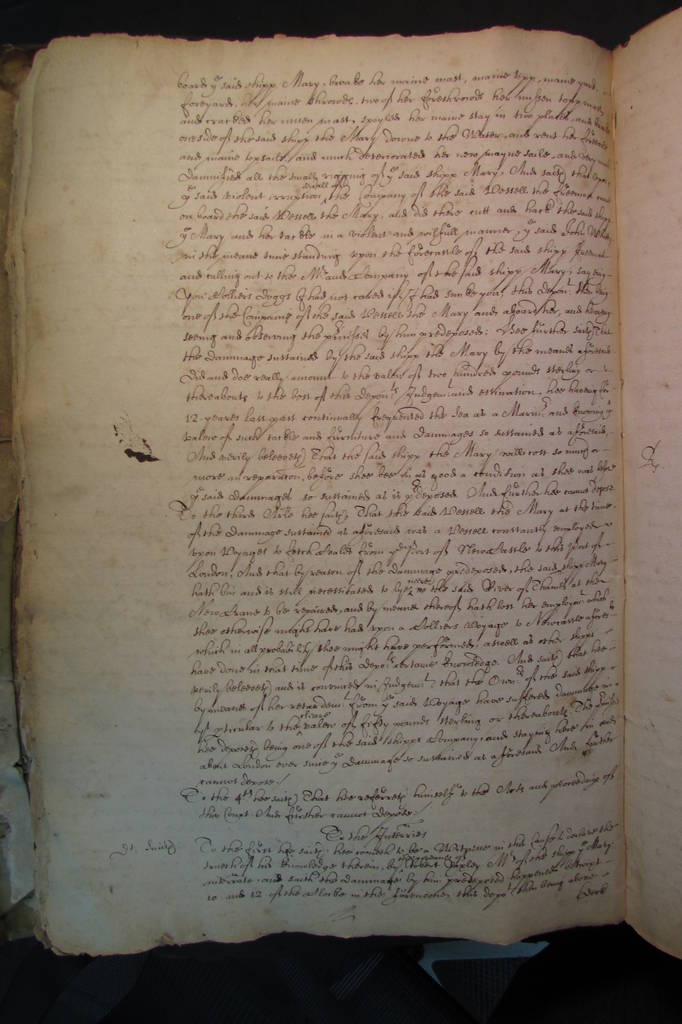 board ye said shipp Mary, broake her maine mast, maine topp, maine yard,
foreyard, her maine shrowds, two of her foreshrowds her missen topp mast
and crackled her missen mast, spoyled her maine stay in two places, and
one side of the said shipp the Mary downe to the Water, and rent her foresaile
and maine topsaile, and much deteriorated her new mayne saile, and very much
damnified all the small rigging of ye said shipp Mary. And saith that upon
ye said violent irruption, severall of the Company of the said Vessell the
on board the said Vessell the Mary, and did there cutt and hack the said shipp
ye Mary and her tackle in a violent and willfull manner, ye said John
in the meane time standing upon the forecastle of the said shipp
and calling out to the Mr. and Company of the said shipp Mary, saying
You Colliers Doggs I had not cared if I had sunke you, this deponent then being
one of the Company of the said Vessell the Mary and aboard her, and hearing
seeing and observing the premises by him predeposed: Hee further saith That
the dammage sustained by the said shipp the Mary by the meanes aforesaid
did and doe really amount to the valew of two hundred pounds sterling or
thereabouts to the best of this deponents Judgement and estimation, hee having for
12 yeares last past continually frequented the Sea as a Mariner and knowing ye
valew of such tackle and furniture and dammages so sustained as aforesaid
And verily beleeveth That the said shipp the Mary will cost so much or
more in reparation, before shee bee in as good a condition as shee was before
ye said dammages so sustained as is predeposed. And further hee cannot depose
To the third Article hee saith That the said Vessell the Mary at the time
of the dammage sustained as aforesaid was a Vessell constantly employed
upon Voyages to fetch Coales from ye Port of New Castle to this Port of
London, And that by reason of the dammage predeposed, the said shipp Mary
hath bin and is still necessitated to lye here in the said River of Thames at the
New Crane to be repaired, and by meanes thereof hath lost her employment which
shee otherwise might have had upon a Colliers Voyage to Newcastle aforesaid
which in all probability shee might have performed, aswell as other shipps
have done in that time of this deponents certaine knowledge. And saith that hee
verily beleeveth and is convinced in Judgement that the Owners of the said shipp
by meanes of her retardement from ye said Voyage have suffered dammage in
this particular to the cleere valew of fifty pounds sterling or thereabouts. The premises
hee deposeth being one of the said shipps Company, and staying here in and
about London ever since ye Dammage so sustained as aforesaid And further
cannot depose/
To the 4th hee saith That hee referreth himselfe to the Acts and proceedings of
this Court And further cannot depose/
To the Interries
To the first hee saith hee cometh to be a Witnesse in this Cause to declare the
trueth of his knowledge therein, by Robert Mr. of the shipp ye Mary
interrate. and saith the dammage by him predeposed happened about
10 and 12 of the Clocke in the forenoone, this deponent then being above
Deck